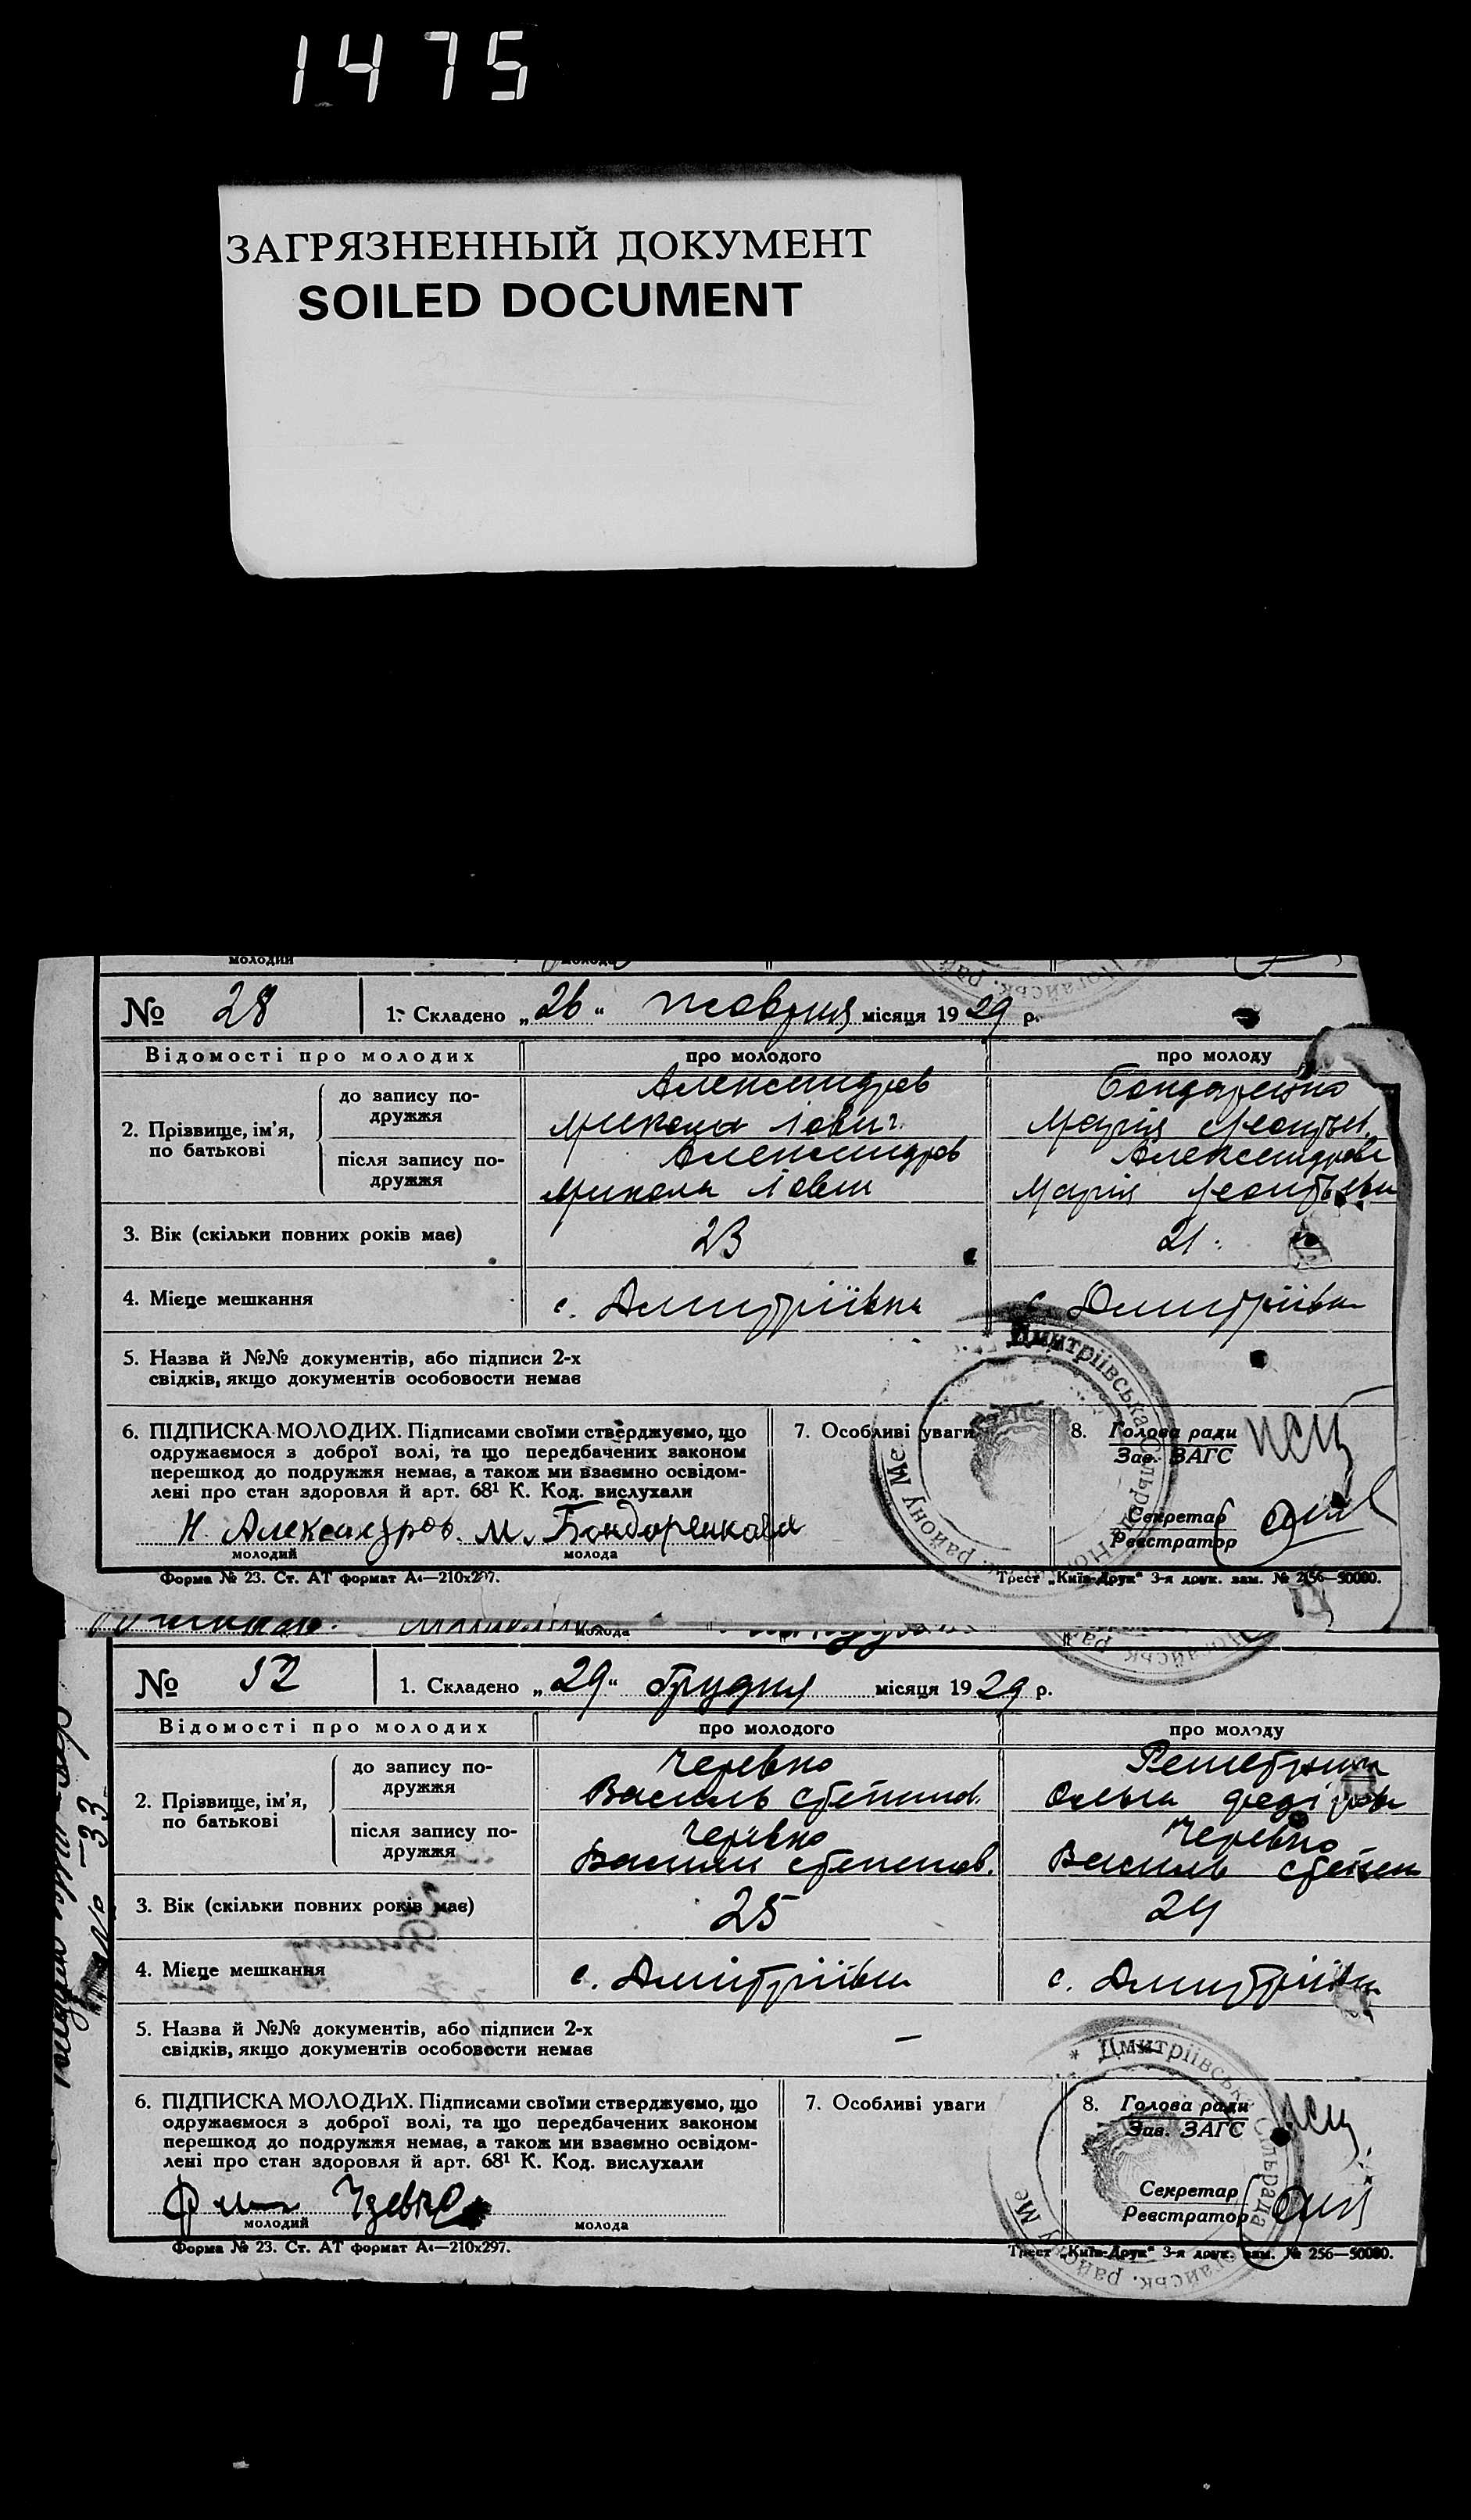 1475
ЗАГРЯЗНЕННЫЙ ДОКУМЕНТ
SOILED DOCUMENT
молодий молода
№ 28 1. Складено „26“ жовтня місяця 1929 р.
Відомості про молодих про молодого про молоду
2. Прізвище, ім'я, по батькові
до запису подружжя
Александров Бондаренко
Микола Марія
після запису подружжя
Александров Александрова
Микола Марія
3. Вік (скільки повних років має) 23 21
4. Місце мешкання с. Дмитріївка с. Дмитріївка
5. Назва й №№ документів, або підписи 2-х
свідків, якщо документів особовости немає
6. ПІДПИСКА МОЛОДИХ. Підписами своїми стверджуємо, що
одружаємося з доброї волі, та що передбачених законом
перешкод до подружжя немає, а також ми взаємно освідом-
лені про стан здоровля й арт. 68¹ К. Код. вислухали
Н. Александров. М. Бондаренкова
молодий молода
7. Особливі уваги
8. Голова ради
Зав. ЗАГС
Секретар
Реєстратор
* Дмитріївська Сільрада Ногайськ. району Ме
Форма № 23. Ст. АТ формат А₄—210х297. Трест „Київ-Друк“ 3-я друк. зам. № 256—50000.
молода
№ 52 1. Складено „29“ грудня місяця 1929 р.
Відомості про молодих про молодого про молоду
2. Прізвище, ім'я, по батькові
до запису подружжя
Черевко
Василь Степанов. Ольга
після запису подружжя
Черевко Черевко
Василь Степанов. Василь Степан
3. Вік (скільки повних років має) 25 24
4. Місце мешкання с. Дмітріївка с. Дмитріївка
5. Назва й №№ документів, або підписи 2-х —
свідків, якщо документів особовости немає
6. ПІДПИСКА МОЛОДИХ. Підписами своїми стверджуємо, що
одружаємося з доброї волі, та що передбачених законом
перешкод до подружжя немає, а також ми взаємно освідом-
лені про стан здоровля й арт. 68¹ К. Код. вислухали
молодий молода
7. Особливі уваги
8. Голова ради
Зав. ЗАГС
Секретар
Реєстратор
* Дмитріївська Сільрада Ногайськ. району Ме
Форма № 23. Ст. АТ формат А₄—210х297. Трест „Київ-Друк“ 3-я друк. зам. № 256—50000.
№ 33